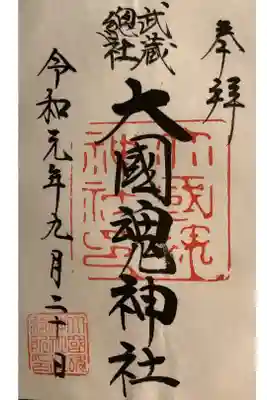 奉拝
武蔵
總社
大國魂神社
令和元年九月二十日